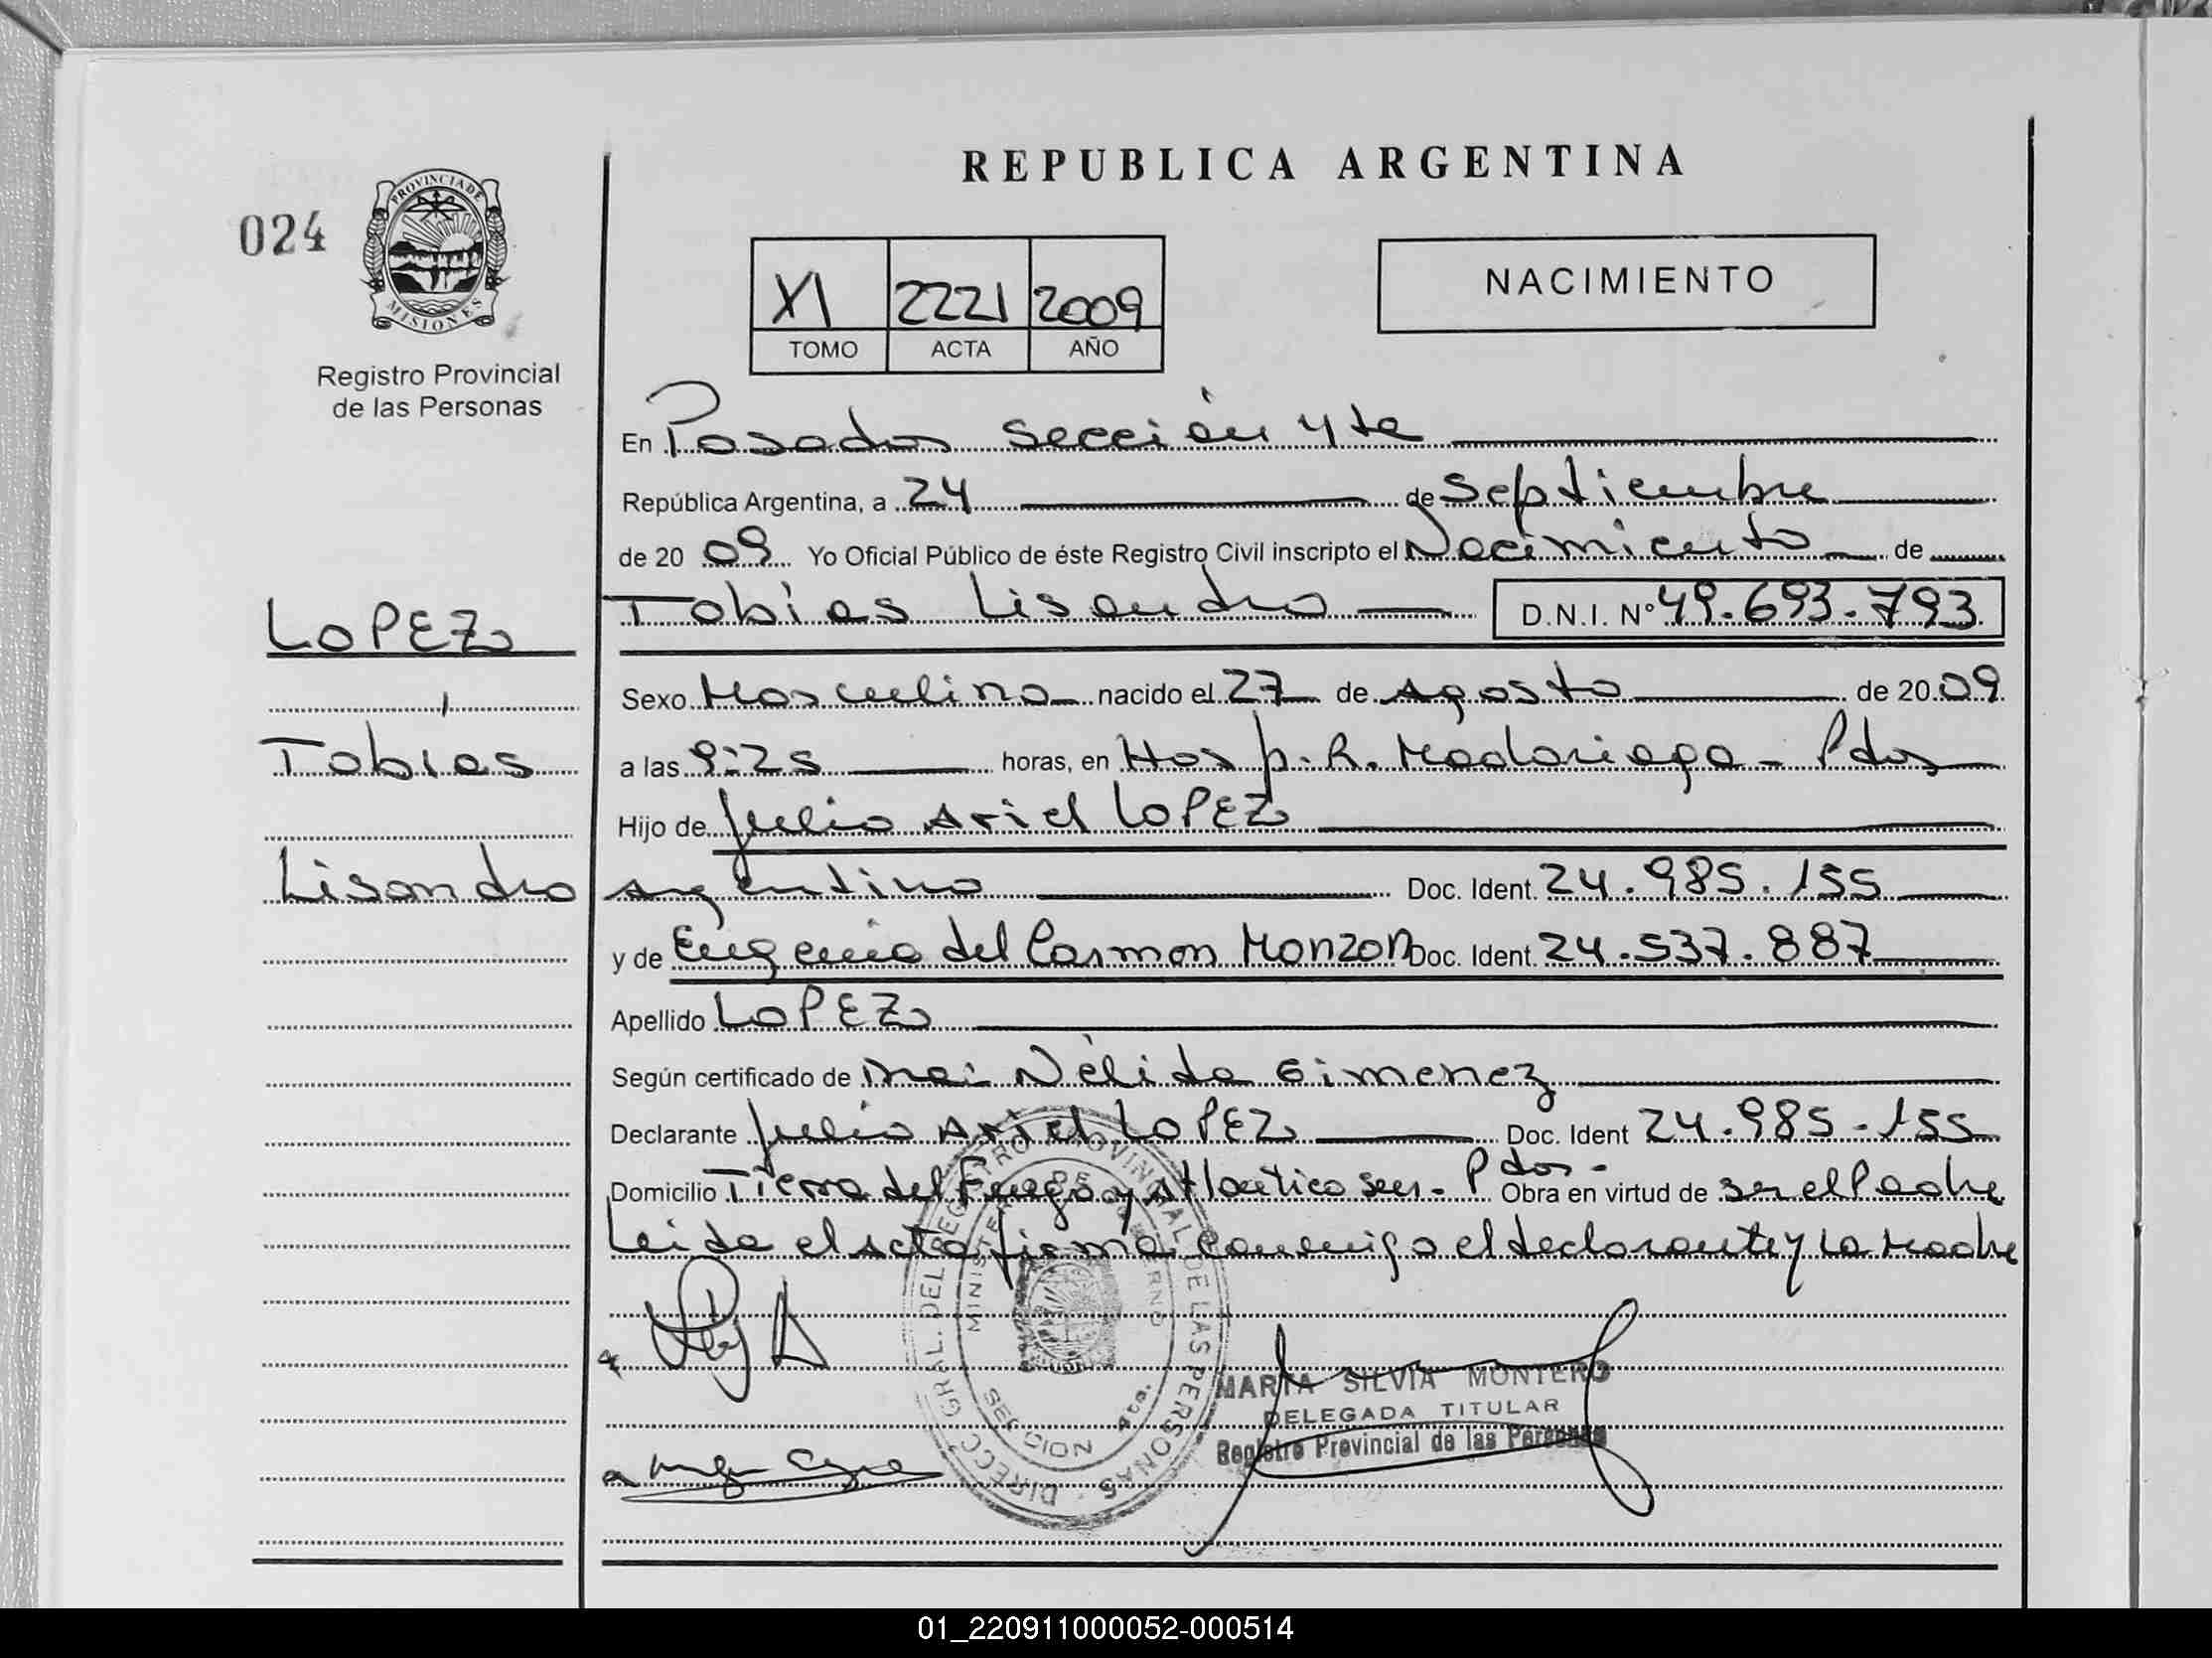 REPUBLICA ARGENTINA
024
PROVINCIA DE
MISIONES
Registro Provincial
de las Personas
XI 2221 2009
TOMO ACTA AÑO
NACIMIENTO
En Posadas Sección 4ta
República Argentina, a 24 de Septiembre
de 2009 Yo Oficial Público de éste Registro Civil inscripto el Nacimiento de
Tobias Lisandro D.N.I. Nº 49.693.793
LOPEZ
Tobias
Lisandro
Sexo Masculino nacido el 27 de Agosto de 2009
a las 9:25 horas, en Hosp. R. Madariaga - Pdas
Hijo de Julio Ariel LOPEZ
Argentino Doc. Ident. 24.985.155
y de Eugenia del Carmen MONZON Doc. Ident. 24.537.887
Apellido LOPEZ
Según certificado de Nélida Gimenez
Declarante Julio Ariel LOPEZ Doc. Ident 24.985.155
Domicilio Tierra del Fuego y Atlantico sur - Pdas - Obra en virtud de ser el Padre
Leida el acta firma conmigo el declarante y La Madre
DIRECC. GRAL. DEL REGISTRO PROVINCIAL DE LAS PERSONAS
MINISTERIO DE GOBIERNO
SECCION 4ta.
MARTA SILVIA MONTERO
DELEGADA TITULAR
Registro Provincial de las Personas
01_220911000052-000514